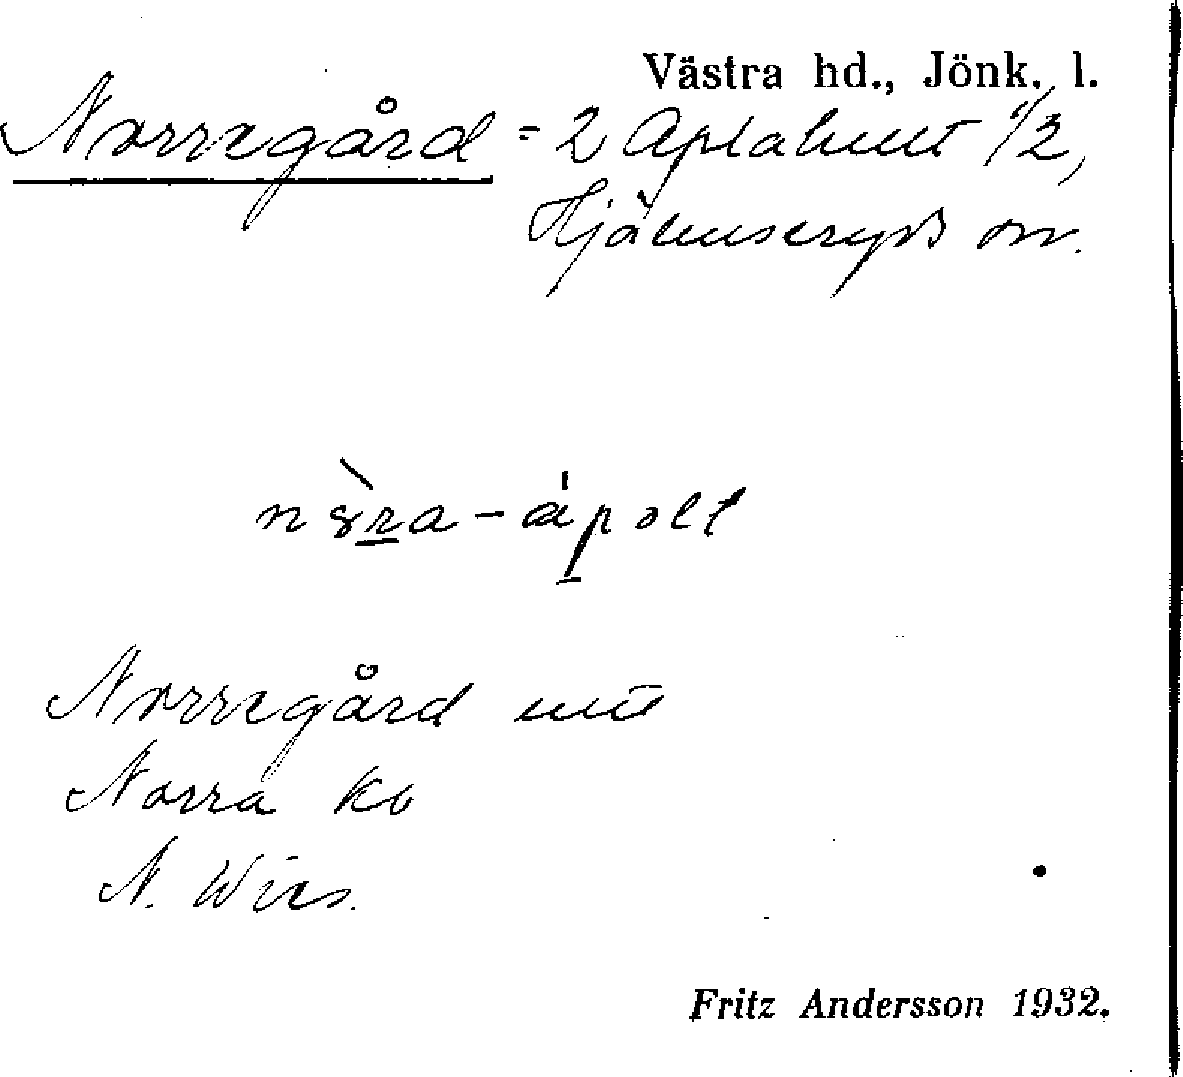 Västra hd., Jönk. l.
Norregård = 2 Aplahult 1/2,
Hjälmseryds sn.
nȣ̀ra-ápolt
Norregård
Norra ko
N. Wirs.
Fritz Andersson 1932.